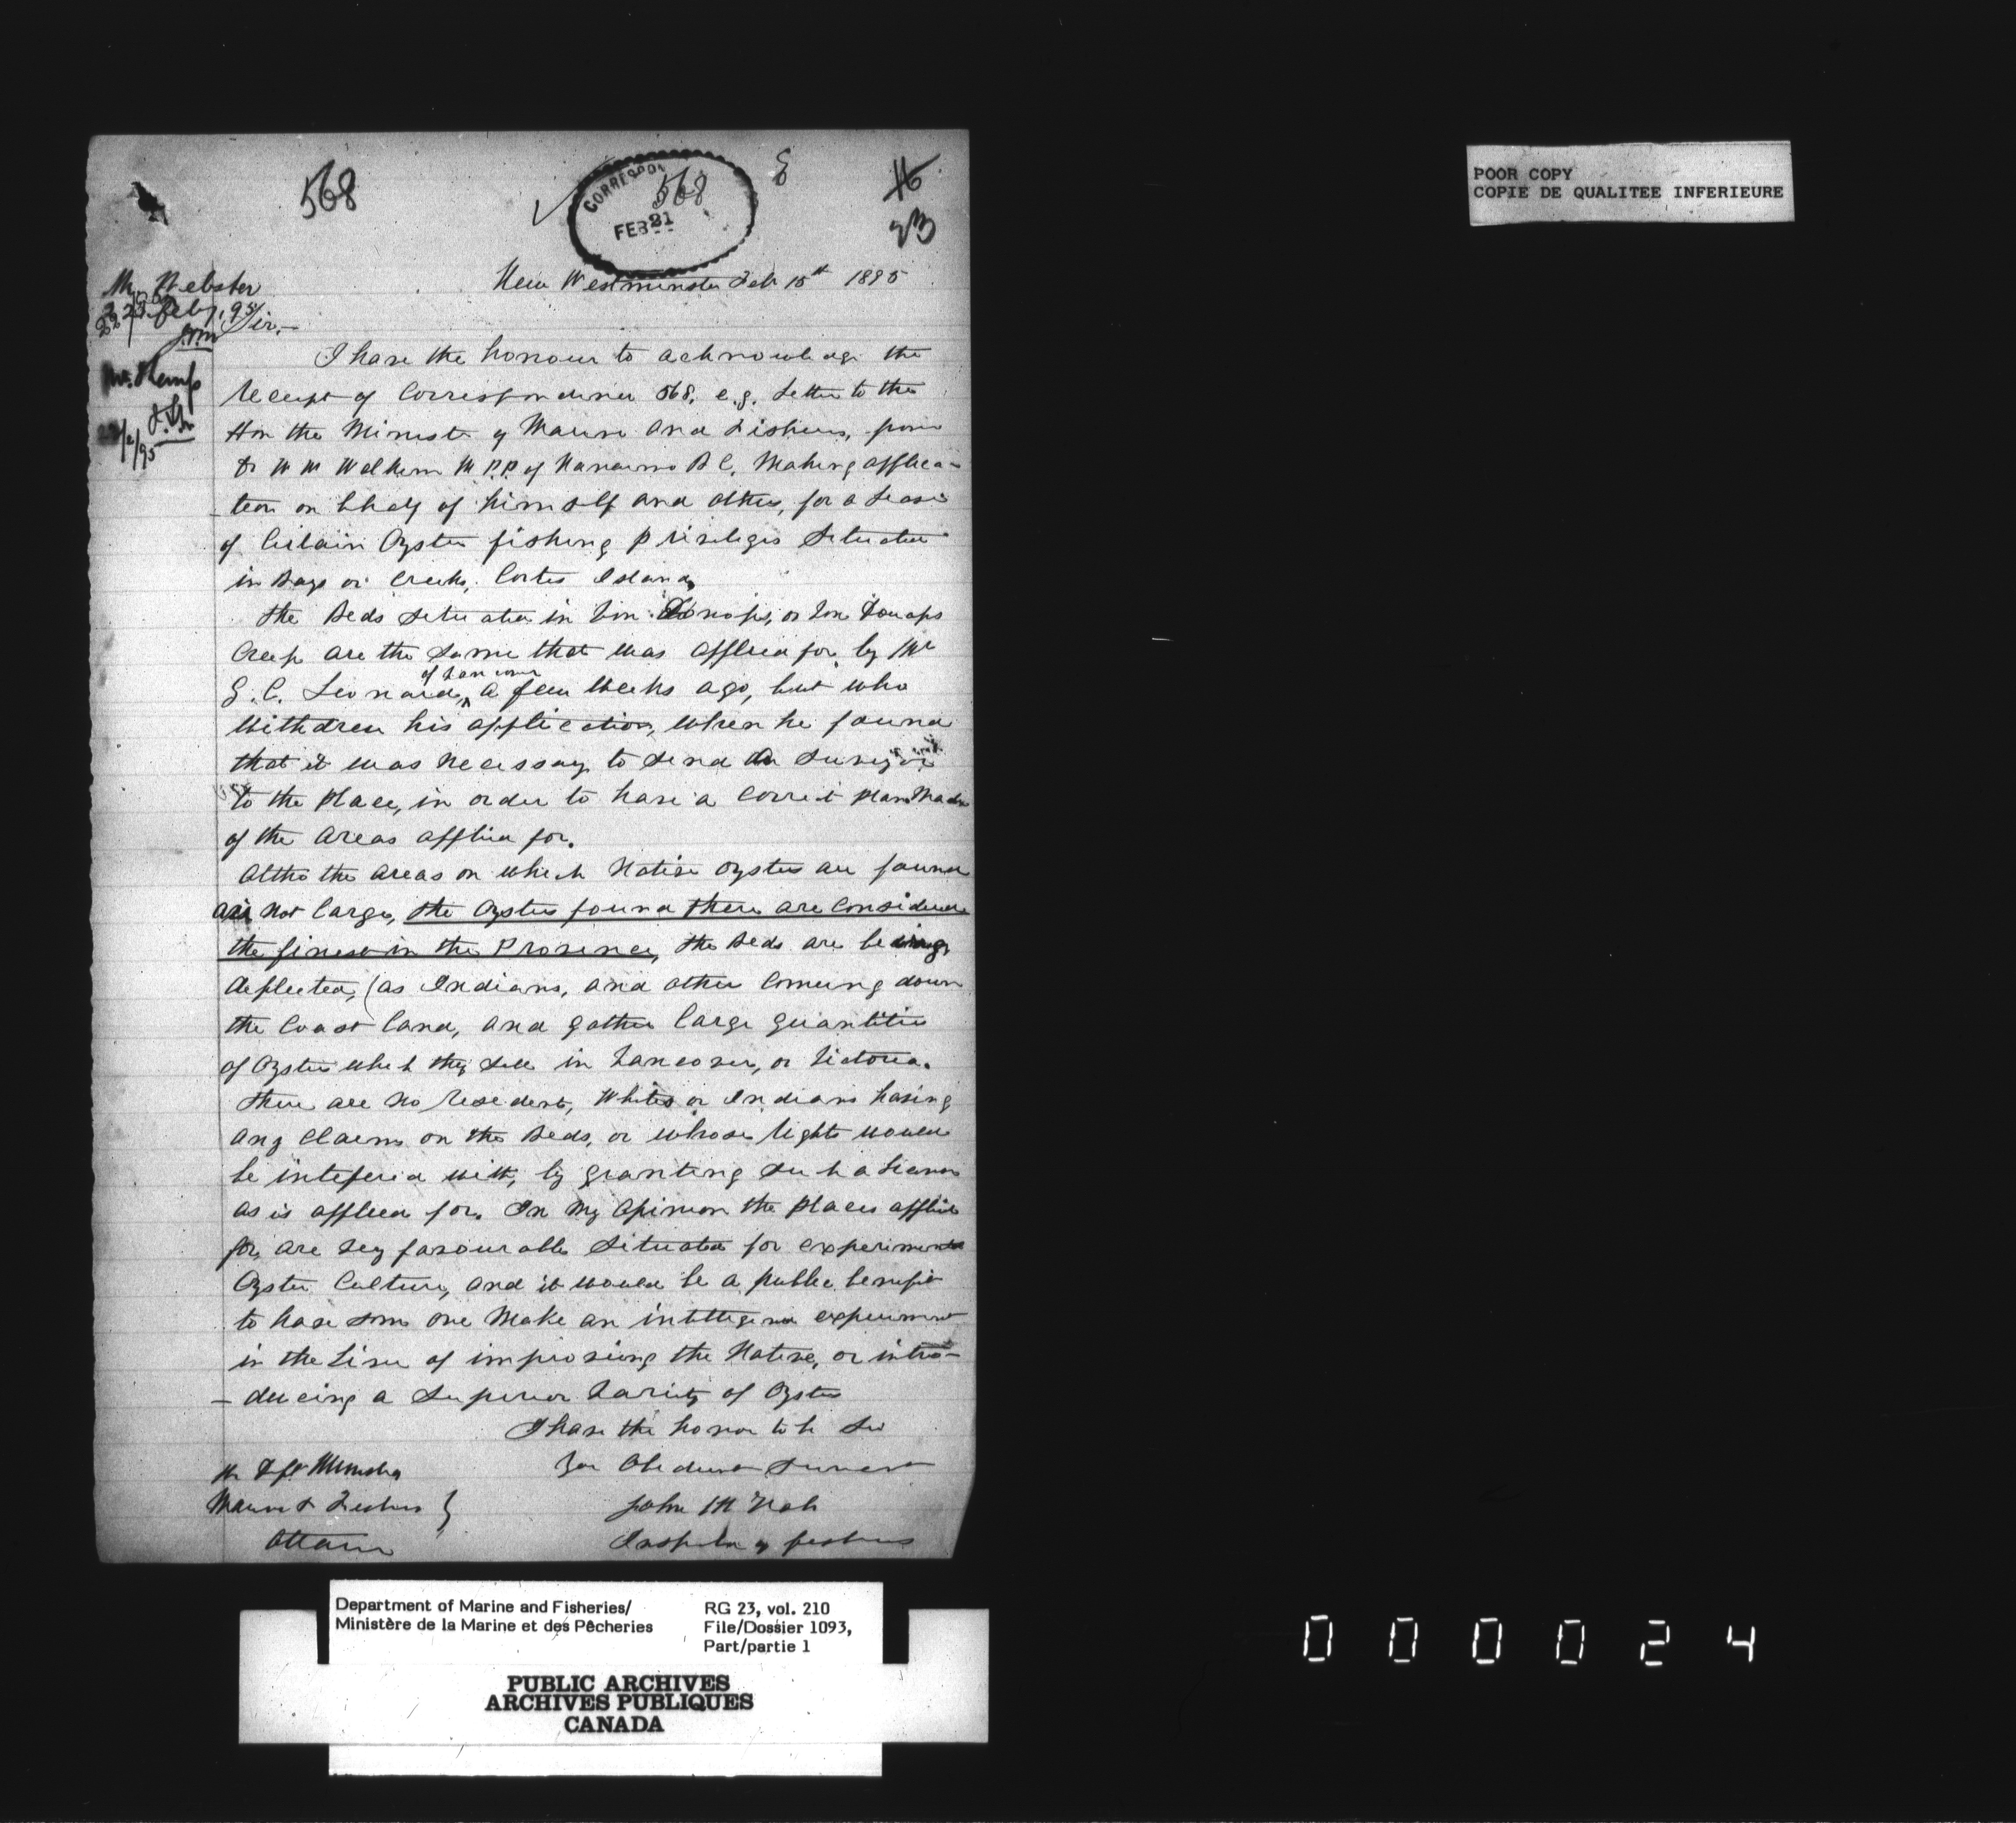 568
CORRESPON
568
FEB 21
8
16
23
POOR COPY
COPIE DE QUALITEE INFERIEURE
Mr. Webster
New Westminster Feb 15th 1895
Feby. 95
Sir,—
Mr. Kemp
/95
I have the honour to acknowledge the
receipt of Correspondence 568, e.g. Letter to the
Hon the Minister of Marine and Fisheries, from
Dr W W Walkem M.P.P. of Nanaimo B C, Making applica-
-tion on behalf of himself and others, for a Lease
of Certain Oyster fishing privileges Situated
in Bays or Creeks, Cortes Island,
the Beds Situated in Von Donops, or Von Donops
Creek are the Same that was applied for by Mr
of Vancouver
G. C. Leonard, a few Weeks ago, but who
Withdrew his application, when he found
that it was Necessary to send a Surveyor
to the Place, in order to have a Correct plan Made
of the Areas applied for.
Altho the Areas on which Native Oysters are found
are Not large, the Oysters found there are Considered
the finest in the Province, the Beds are being
depleeted, (as Indians, and others Comeing down
the Coast land, and gather large quantities
of Oysters which they Sell in Vancover, or Victoria.
there are no Resedent, Whites or Indians having
any Claems on the Beds, or whose rights would
be inteferid with, by granting Such a License
as is applied for. In My Opinion the places applied
for are Very favourable Situated for experimental
Oyster Culture, and it would be a public benefit
to have Some one Make an intellegent experiment
in the Line of improveing the Native, or intro-
-ducing a Superior Variety of Oyster
I have the honor to be Sir
Your Obedient Servant
The Dpt Minister
Marine & Fisheries }
Ottawa
John McNab
Inspector of fisheries
Department of Marine and Fisheries/
Ministère de la Marine et des Pêcheries
RG 23, vol. 210
File/Dossier 1093,
Part/partie 1
PUBLIC ARCHIVES
ARCHIVES PUBLIQUES
CANADA
000024